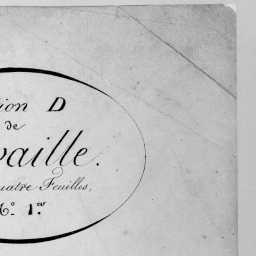 ion D
de
vaille.
uatre Feuilles,
N.º 1.er